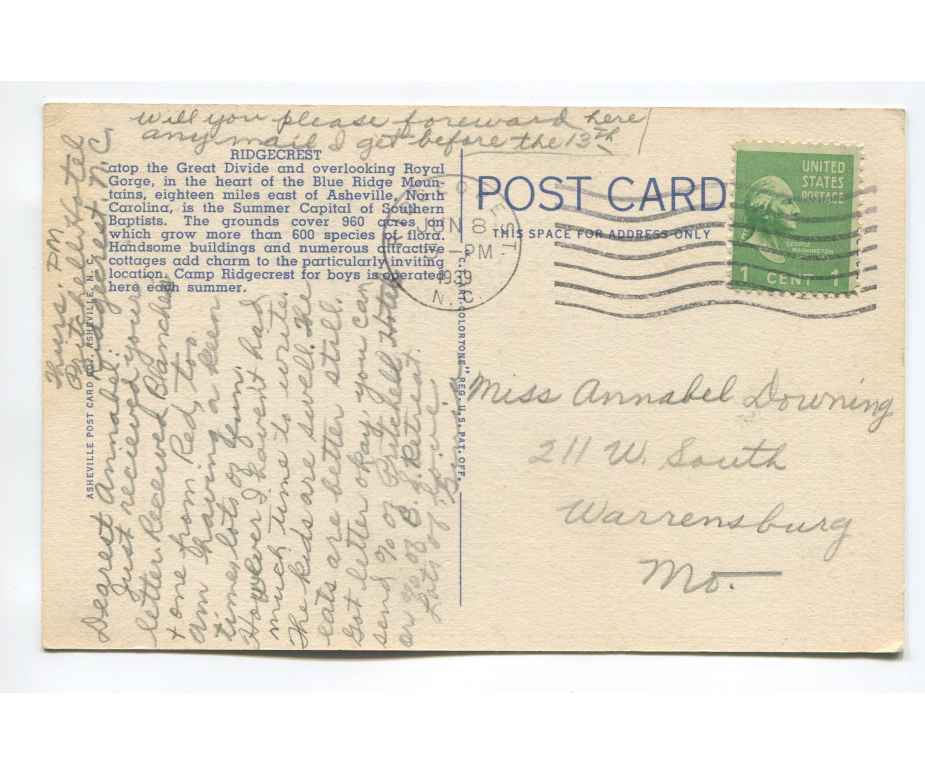 will you please foreward here
any mail I get before the 13th
RIDGECREST
atop the Great Divide and overlooking Royal
Gorge, in the heart of the Blue Ridge Moun-
tains, eighteen miles east of Asheville, North
Carolina, is the Summer Capital of Southern
Baptists. The grounds cover 960 acres on
which grow more than 600 species of flora.
Handsome buildings and numerous attractive
cottages add charm to the particularly inviting
location. Camp Ridgecrest for boys is operated
here each summer.
Thurs. PM
Pritchell Hotel
Ridgecrest N.C.
Dearest Annabel:
Just recieved your
letter. Received Blanche's
+ one from Red, too.
Am having a keen
time, lots of fun.
However I haven't had
much time to write.
The kids are swell. The
eats are better still.
Got letter okay you can
send % of Pritchell Hotel
or % of B. S. Retreat.
Lots of love
ASHEVILLE POST CARD CO., ASHEVILLE, N. C.
REG. U. S. PAT. OFF.
POST CARD
THIS SPACE FOR ADDRESS ONLY
N 8
PM
1939
N.C.
UNITED
STATES
POSTAGE
GEORGE
WASHINGTON
1 CENT 1
Miss Annabel Downing
211 W. South
Warrensburg
Mo.